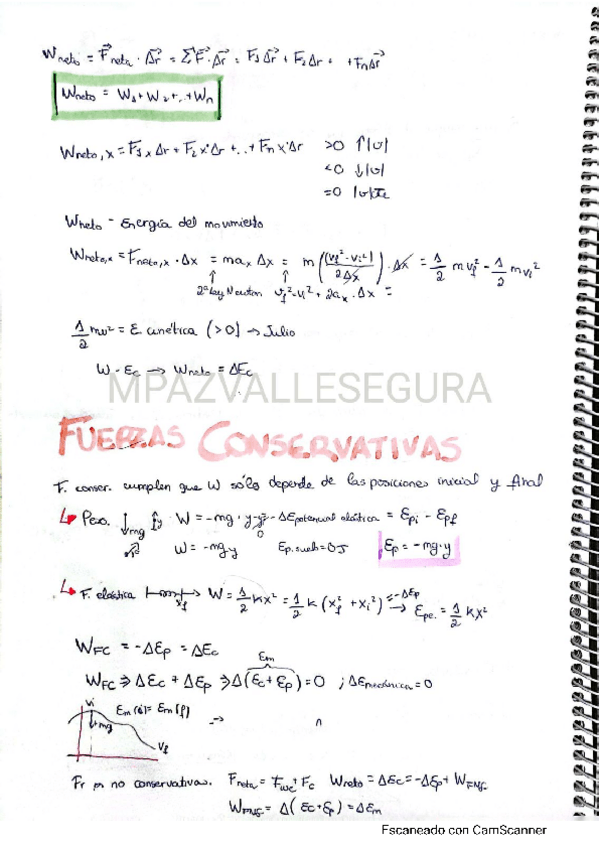 Wneto = F⃗neta · Δr⃗ = ΣF⃗ · Δr⃗ = F₁Δr⃗ + F₂Δr + +FnΔr⃗
Wneto = W₁+W₂+..+Wn
Wneto,x = F₁xΔr + F₂x·Δr +..+ Fnx·Δr >0 ↑|v|
<0 ↓|v|
=0 |v|cte
Wneto - Energía del movimiento
Wneto,x = Fneta,x · Δx = max Δx = m((vf²-vi²)/2Δx) · Δx = 1/2 mvf² - 1/2 mvi²
2ª Ley Newton vf²=vi² + 2ax · Δx =
1/2 mv² = E cinética (>0) → Julio
W - Ec → Wneto = ΔEc
MPAZVALLESEGURA
FUERZAS CONSERVATIVAS
F. conser. cumplen que W sólo depende de las posiciones inicial y final
↳ Peso. ↓mg W = -mg · y - ΔEpotencial elástica = Epi - Epf
W = -mg·y Ep. suelo = 0J Ep = -mg·y
↳ F. elástica W = 1/2 Kx² = 1/2 k (xf² + xi²) =-ΔEp → Epe. = 1/2 Kx²
WFC = -ΔEp = ΔEc
Em
WFC ⇒ ΔEc + ΔEp ⇒ Δ(Ec + Ep) = 0 ; ΔEmecánica = 0
vi Em(i) = Em(f)
↓mg → n
vf
Fr no conservativa. Fneta = Fnc + Fc Wneto = ΔEc = -ΔEp + WFNC.
WFNC = Δ(Ec+Ep) = ΔEm
Escaneado con CamScanner